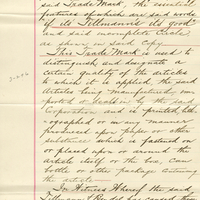 said Trade Mark, the essential
features of which are said words
"if its Tillmann's its good"
and said incomplete Circle
as shown in said Copy.
This Trade Mark is used to
distinguish and designate a
certain quality of the articles
to which it is applied, the said
Articles being manufactured,
ported & dealt in by the said
Corporation and is printed, lith-
ographed or in any manner
produced upon paper or other
substance which is fastened on
or placed upon or around the
article itself or the box, can
bottle or other package containing
the article.
In Witness Whereof the said
Tillmann & Bendel has caused these